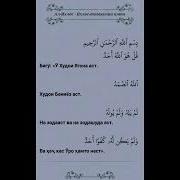 بِسْمِ اللَّهِ الرَّحْمَٰنِ الرَّحِيمِ
قُلْ هُوَ اللَّهُ أَحَدٌ
Бигу: «Ӯ Худои Ягона аст.
اللَّهُ الصَّمَدُ
Худои Бениёз аст.
لَمْ يَلِدْ وَلَمْ يُولَدْ
На зодааст ва на зоидашуда аст.
وَلَمْ يَكُن لَّهُ كُفُوًا أَحَدٌ
Ва ҳеҷ кас Ӯро ҳамто нест».